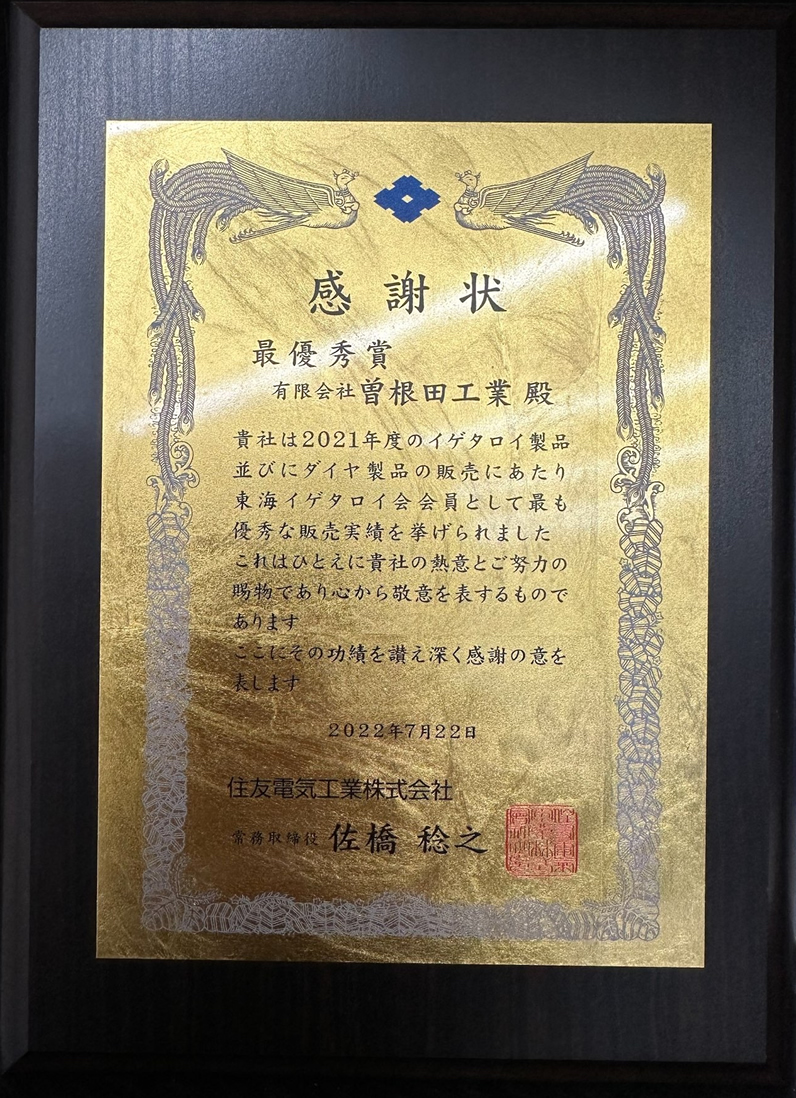 感謝状
最優秀賞
有限会社曽根田工業 殿
貴社は2021年度のイゲタロイ製品
並びにダイヤ製品の販売にあたり
東海イゲタロイ会会員として最も
優秀な販売実績を挙げられました
これはひとえに貴社の熱意とご努力の
賜物であり心から敬意を表するもので
あります
ここにその功績を讃え深く感謝の意を
表します
2022年7月22日
住友電気工業株式会社
常務取締役 佐橋 稔之